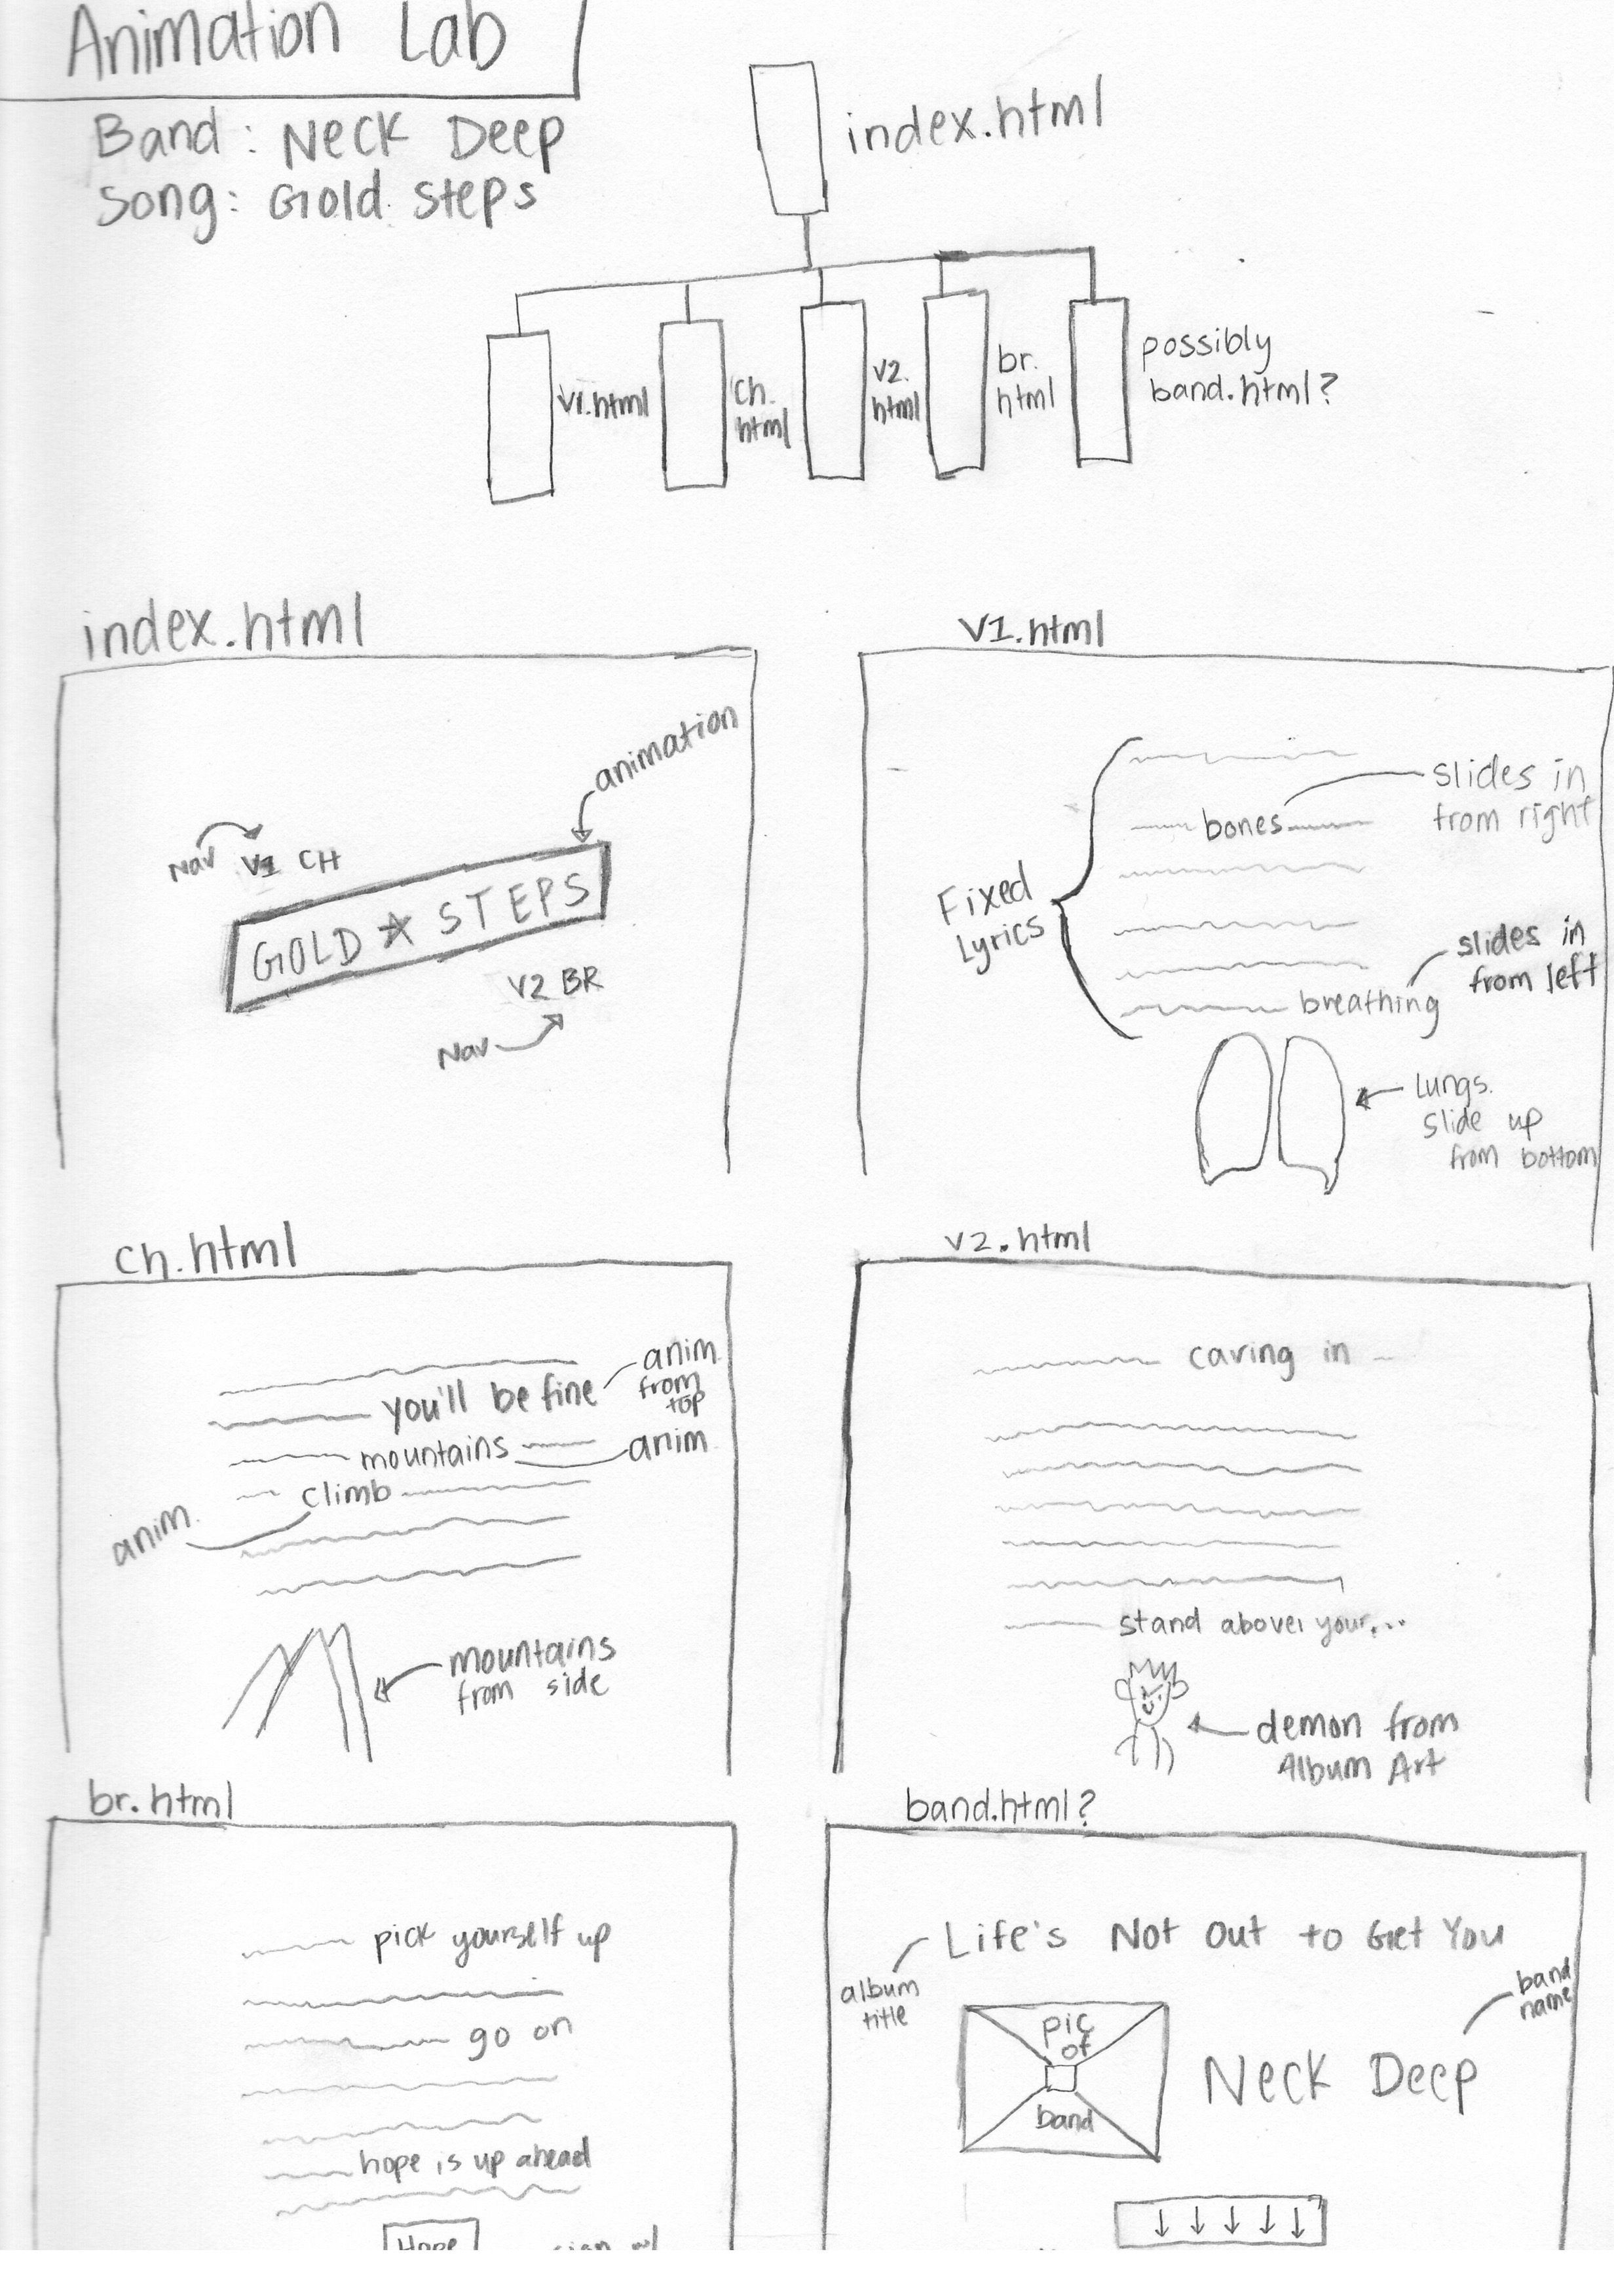 Animation Lab
Band: Neck Deep
Song: Gold Steps
index.html
V1.html
Ch.
html
V2.
html
br.
html
possibly
band.html?
index.html
animation
Nav V1 CH
GOLD ☆ STEPS
V2 BR
Nav
V1.html
slides in
from right
bones
Fixed
Lyrics
slides in
from left
breathing
Lungs.
slide up
from bottom
Ch.html
anim.
from
top
you'll be fine
mountains
anim.
climb
anim.
mountains
from side
V2.html
caving in
stand above your...
demon from
Album Art
br.html
pick yourself up
go on
hope is up ahead
Hope
sign w/
band.html?
Life's Not Out to Get You
album
title
band
name
pic
of
band
Neck Deep